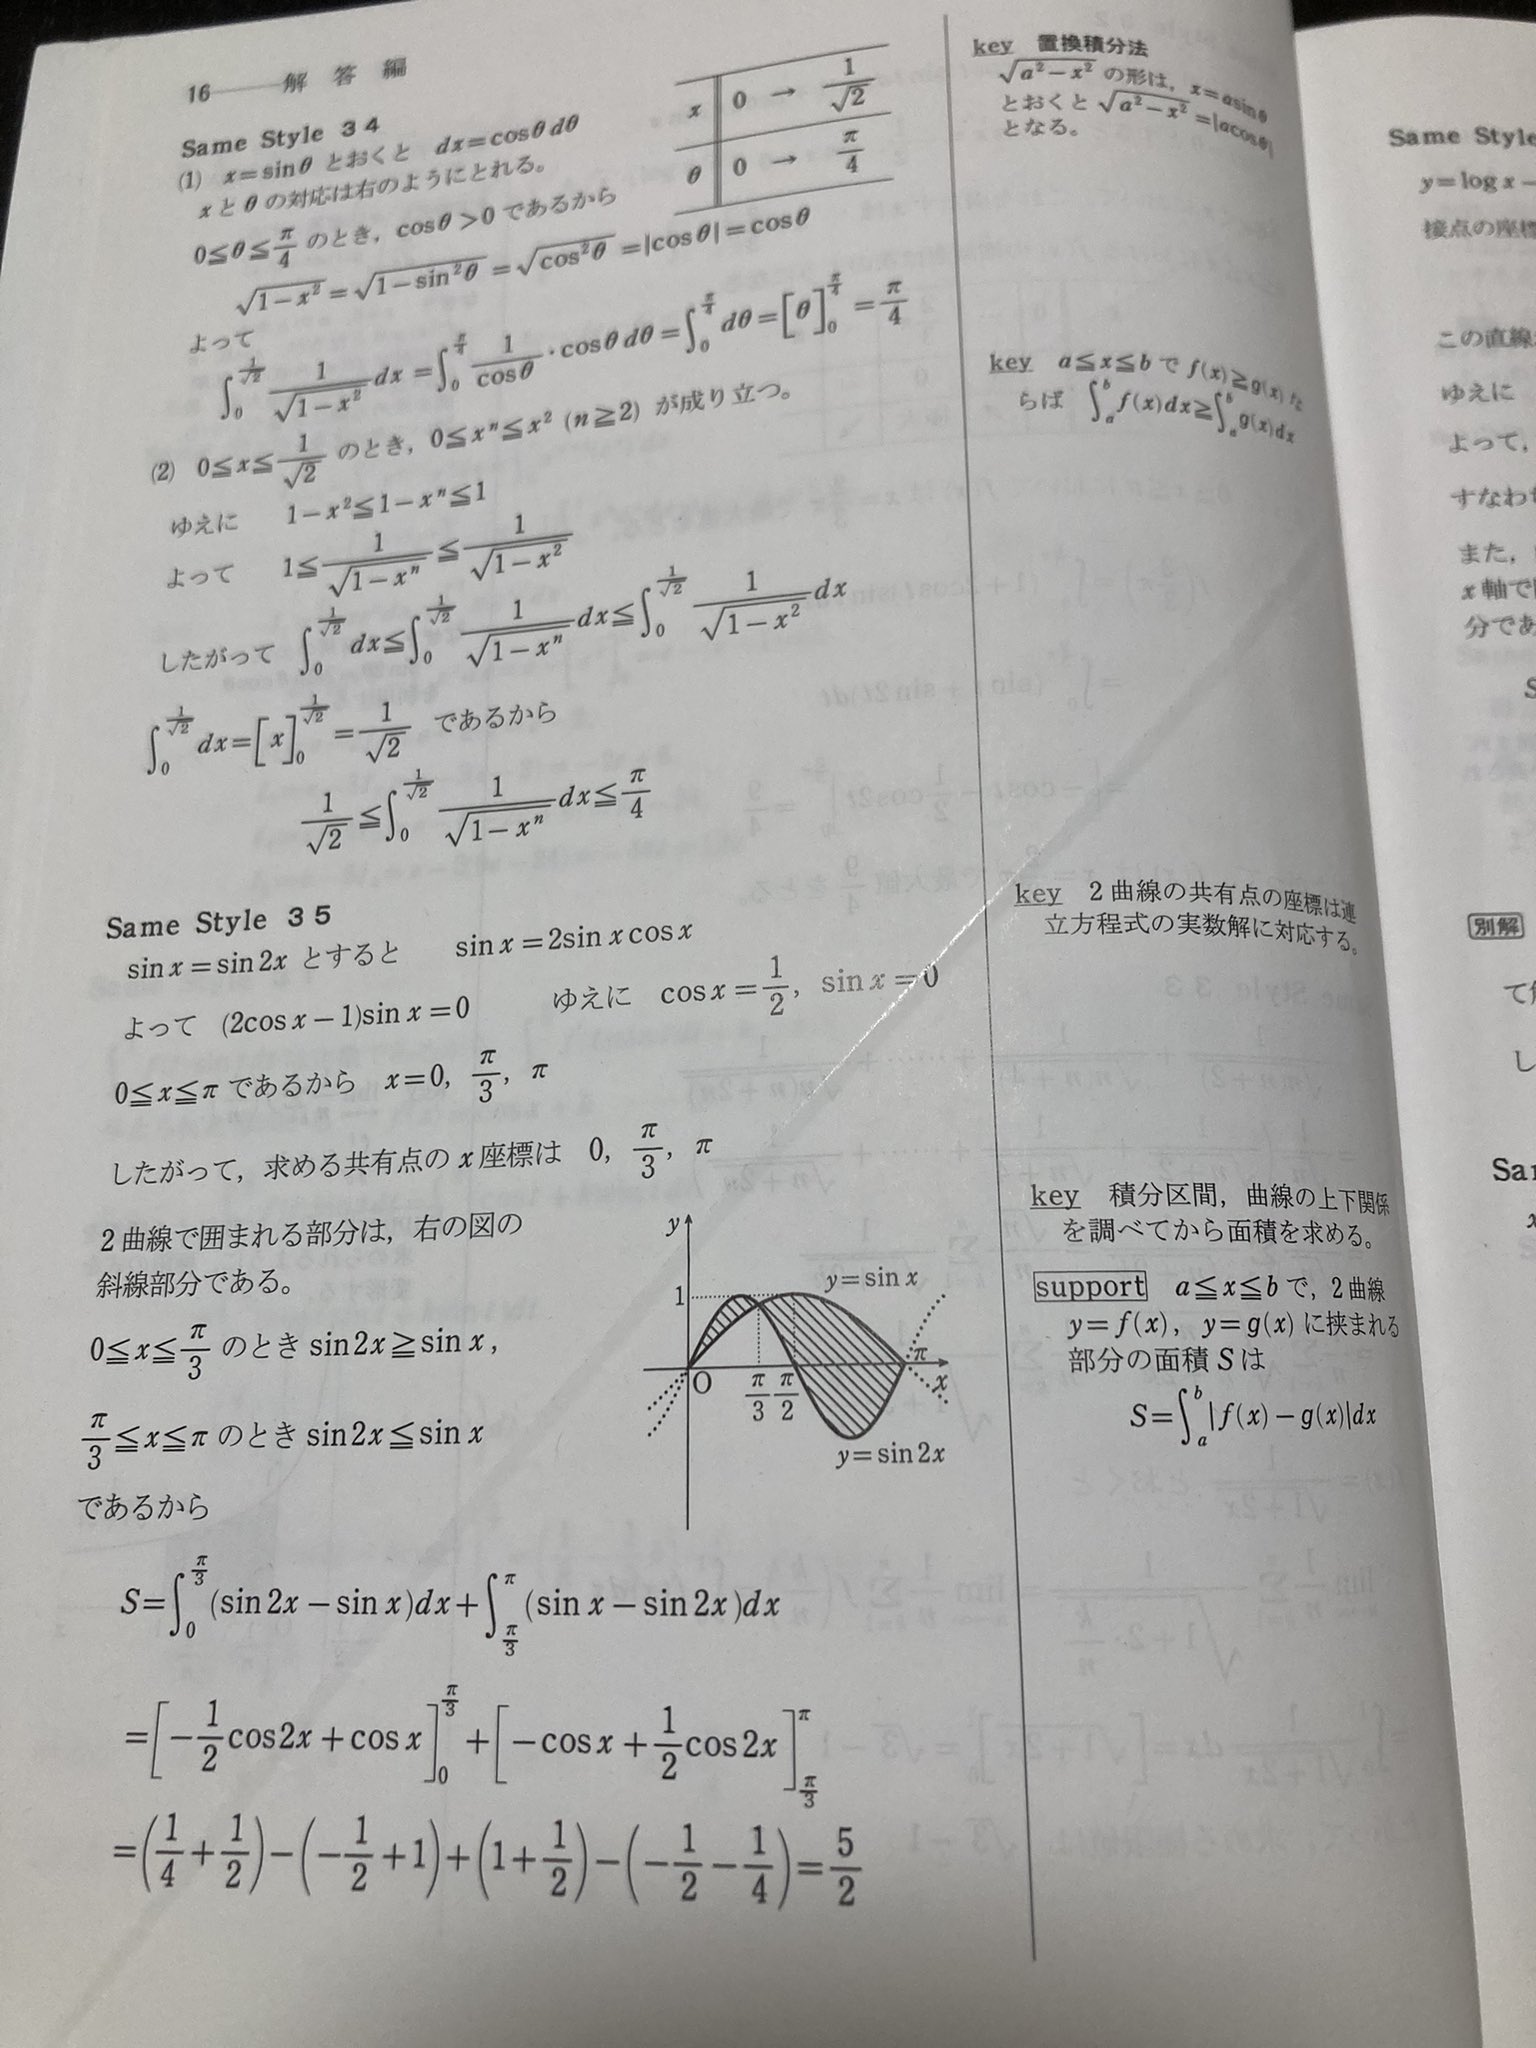 16――解答編
Same Style 34
(1) x=sinθ とおくと dx=cosθdθ
xとθの対応は右のようにとれる。
x | 0 → 1/√2
θ | 0 → π/4
0≦θ≦π/4 のとき，cosθ>0であるから
√(1−x²)=√(1−sin²θ)=√(cos²θ)=|cosθ|=cosθ
よって
∫₀^{1/√2} 1/√(1−x²) dx=∫₀^{π/4} 1/cosθ・cosθdθ=∫₀^{π/4} dθ=[θ]₀^{π/4}=π/4
(2) 0≦x≦1/√2 のとき，0≦xⁿ≦x² (n≧2) が成り立つ。
ゆえに 1−x²≦1−xⁿ≦1
よって 1≦1/√(1−xⁿ)≦1/√(1−x²)
したがって ∫₀^{1/√2} dx≦∫₀^{1/√2} 1/√(1−xⁿ) dx≦∫₀^{1/√2} 1/√(1−x²) dx
∫₀^{1/√2} dx=[x]₀^{1/√2}=1/√2 であるから
1/√2≦∫₀^{1/√2} 1/√(1−xⁿ) dx≦π/4
Same Style 35
sinx=sin2x とすると sinx=2sinxcosx
よって (2cosx−1)sinx=0 ゆえに cosx=1/2，sinx=0
0≦x≦πであるから x=0，π/3，π
したがって，求める共有点のx座標は 0，π/3，π
2曲線で囲まれる部分は，右の図の
斜線部分である。
0≦x≦π/3 のとき sin2x≧sinx，
π/3≦x≦π のとき sin2x≦sinx
であるから
y
1
y=sinx
O
π/3
π/2
π
x
y=sin2x
S=∫₀^{π/3}(sin2x−sinx)dx+∫_{π/3}^{π}(sinx−sin2x)dx
=[−1/2cos2x+cosx]₀^{π/3}+[−cosx+1/2cos2x]_{π/3}^{π}
=(1/4+1/2)−(−1/2+1)+(1+1/2)−(−1/2−1/4)=5/2
key 置換積分法
√(a²−x²) の形は，x=asinθ
とおくと √(a²−x²)=|acosθ|
となる。
key a≦x≦bで f(x)≧g(x)な
らば ∫ₐᵇf(x)dx≧∫ₐᵇg(x)dx
key 2曲線の共有点の座標は連
立方程式の実数解に対応する。
key 積分区間，曲線の上下関係
を調べてから面積を求める。
support a≦x≦bで，2曲線
y=f(x)，y=g(x)に挟まれる
部分の面積Sは
S=∫ₐᵇ|f(x)−g(x)|dx
Same Style
y=logx−
接点の座標
この直線
ゆえに
よって，
すなわち
また，
x軸で
分であ
S
別解
し
Sa
x